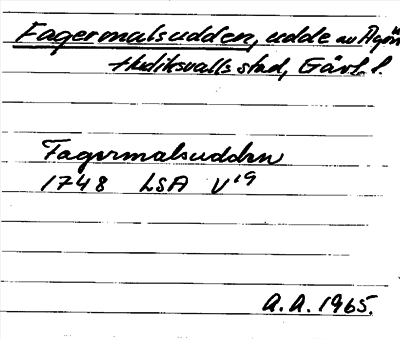 Fagermalsudden, udde av Agön
Hudiksvalls stad, Gävl. l.
Fagermalsudden
1748 LSA V19
A.A. 1965.